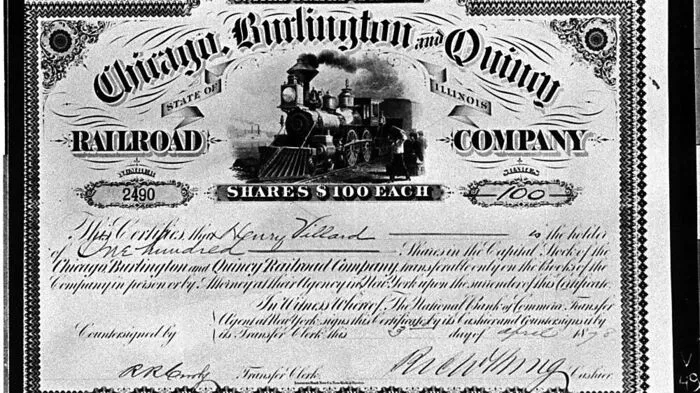 Chicago, Burlington and Quincy
STATE OF ILLINOIS
RAILROAD COMPANY
NUMBER
2490
SHARES $100 EACH
SHARES
100
This Certifies that Henry Villard is the holder
of One hundred Shares in the Capital Stock of the
Chicago, Burlington and Quincy Railroad Company, transferable only on the Books of the
Company in person or by Attorney at their Agency in New York upon the surrender of this Certificate.
In Witness Whereof, The National Bank of Commerce Transfer
Agent at New York, signs this Certificate by its Cashier and Countersigned by
its Transfer Clerk this 3 day of April
Countersigned by
Transfer Clerk
Cashier